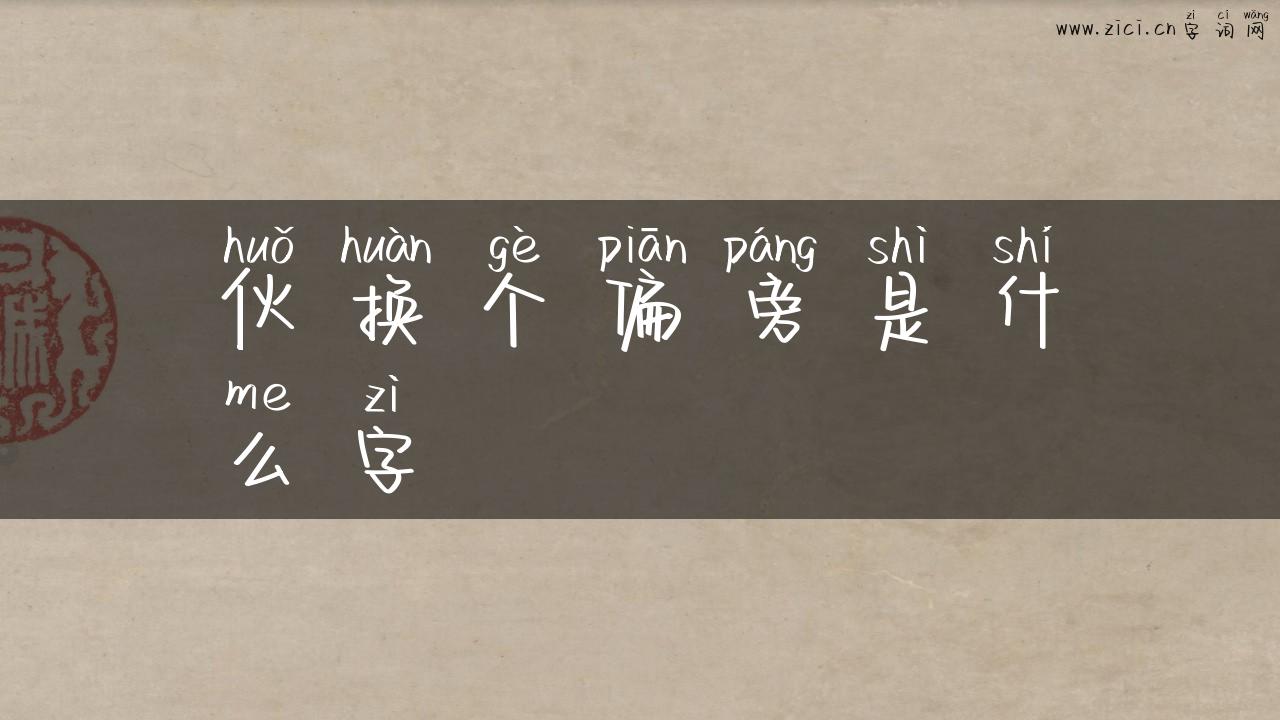 zì cí wǎng
www.zici.cn 字词网
huǒ huàn gè piān páng shì shí
伙换个偏旁是什
me zì
么字